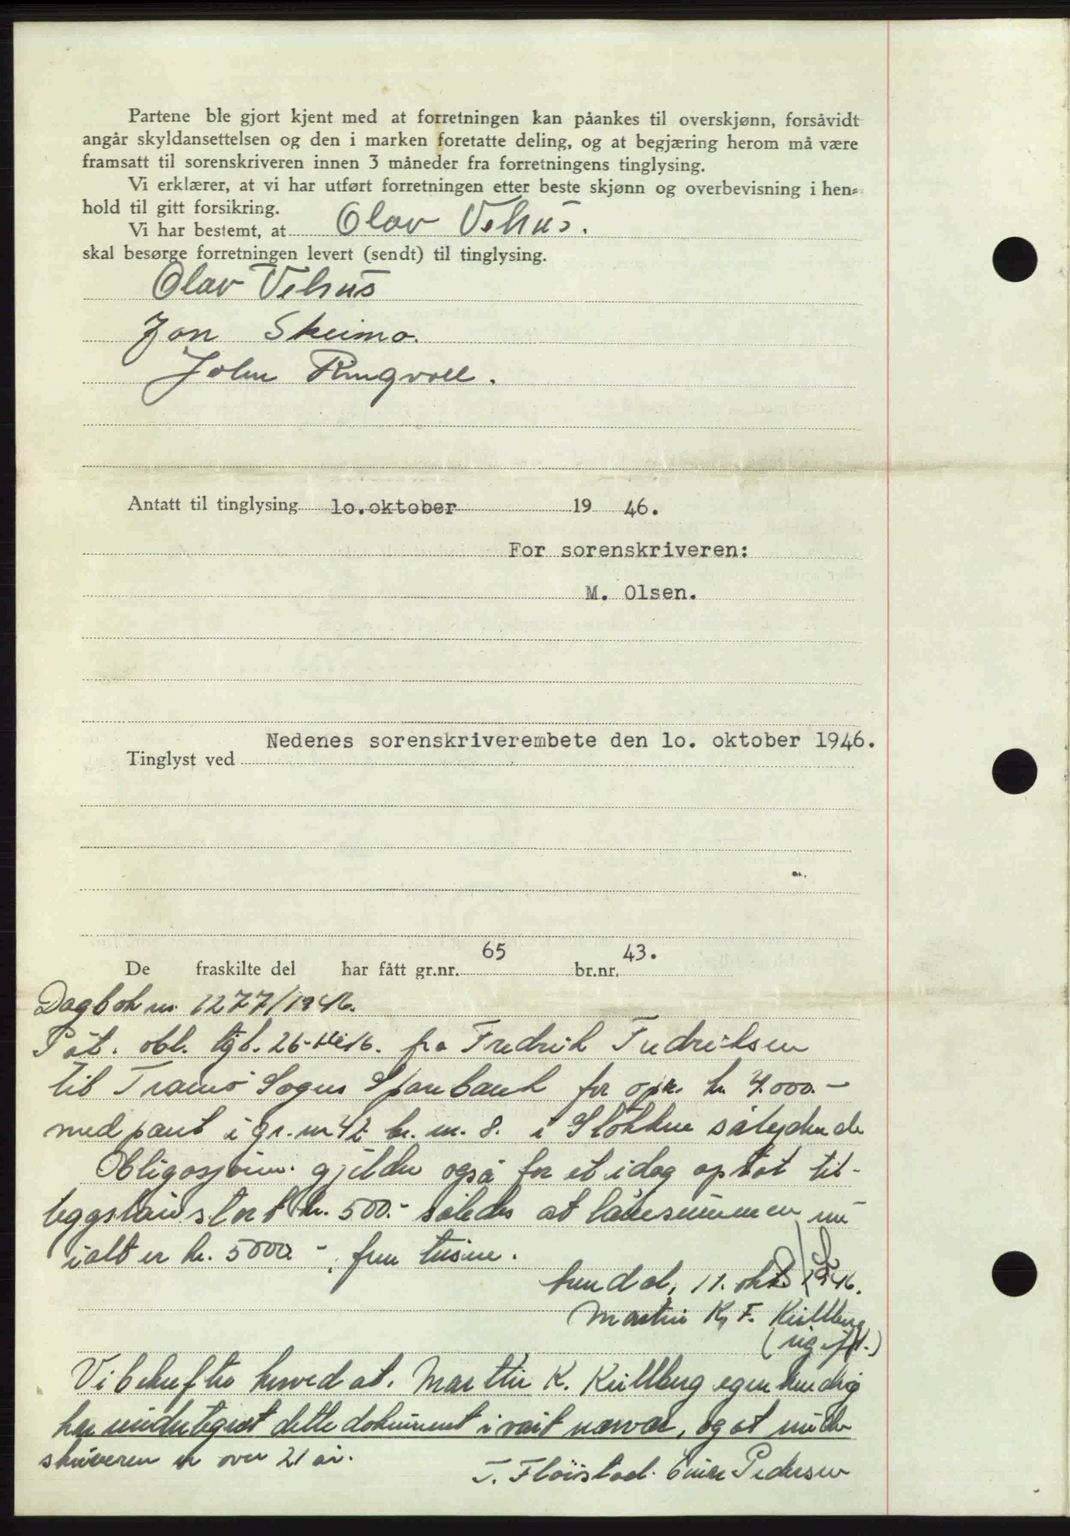 Partene ble gjort kjent med at forretningen kan påankes til overskjønn, forsåvidt
angår skyldansettelsen og den i marken foretatte deling, og at begjæring herom må være
framsatt til sorenskriveren innen 3 måneder fra forretningens tinglysing.
Vi erklærer, at vi har utført forretningen etter beste skjønn og overbevisning i hen=
hold til gitt forsikring.
Vi har bestemt, at Olav Vehus.
skal besørge forretningen levert (sendt) til tinglysing.
Olav Vehus
Jon Skeimo.
John Ringvoll.
Antatt til tinglysing lo.oktober 19 46.
For sorenskriveren:
M. Olsen.
Nedenes sorenskriverembete den lo. oktober 1946.
Tinglyst ved
65 43.
De fraskilte del har fått gr.nr. br.nr.
Dagbok nr. 1277/1946.
Påt. obl. tgl. 26- fra Fredrik Fredriksen
til Tromø Sogns Sparebank for opr. kr. 4.000.-
med pant i gr. nr. 42 br. nr. 8. i sålydende
Obligasjonen gjelder også for et idag optat til-
leggslån stort kr. 500.- således at lånesummen nu
ialt er kr. 5000.-, fem tusine.
11. okt. 1946.
Martin K. F. Kullberg
Vi bekrefter herved at. Martin K. Kullberg egenhendig
har undertegnet dette dokument i vårt nærvær, og at under
skriveren er over 21 år.
T. Fløistad. Einar Pedersen